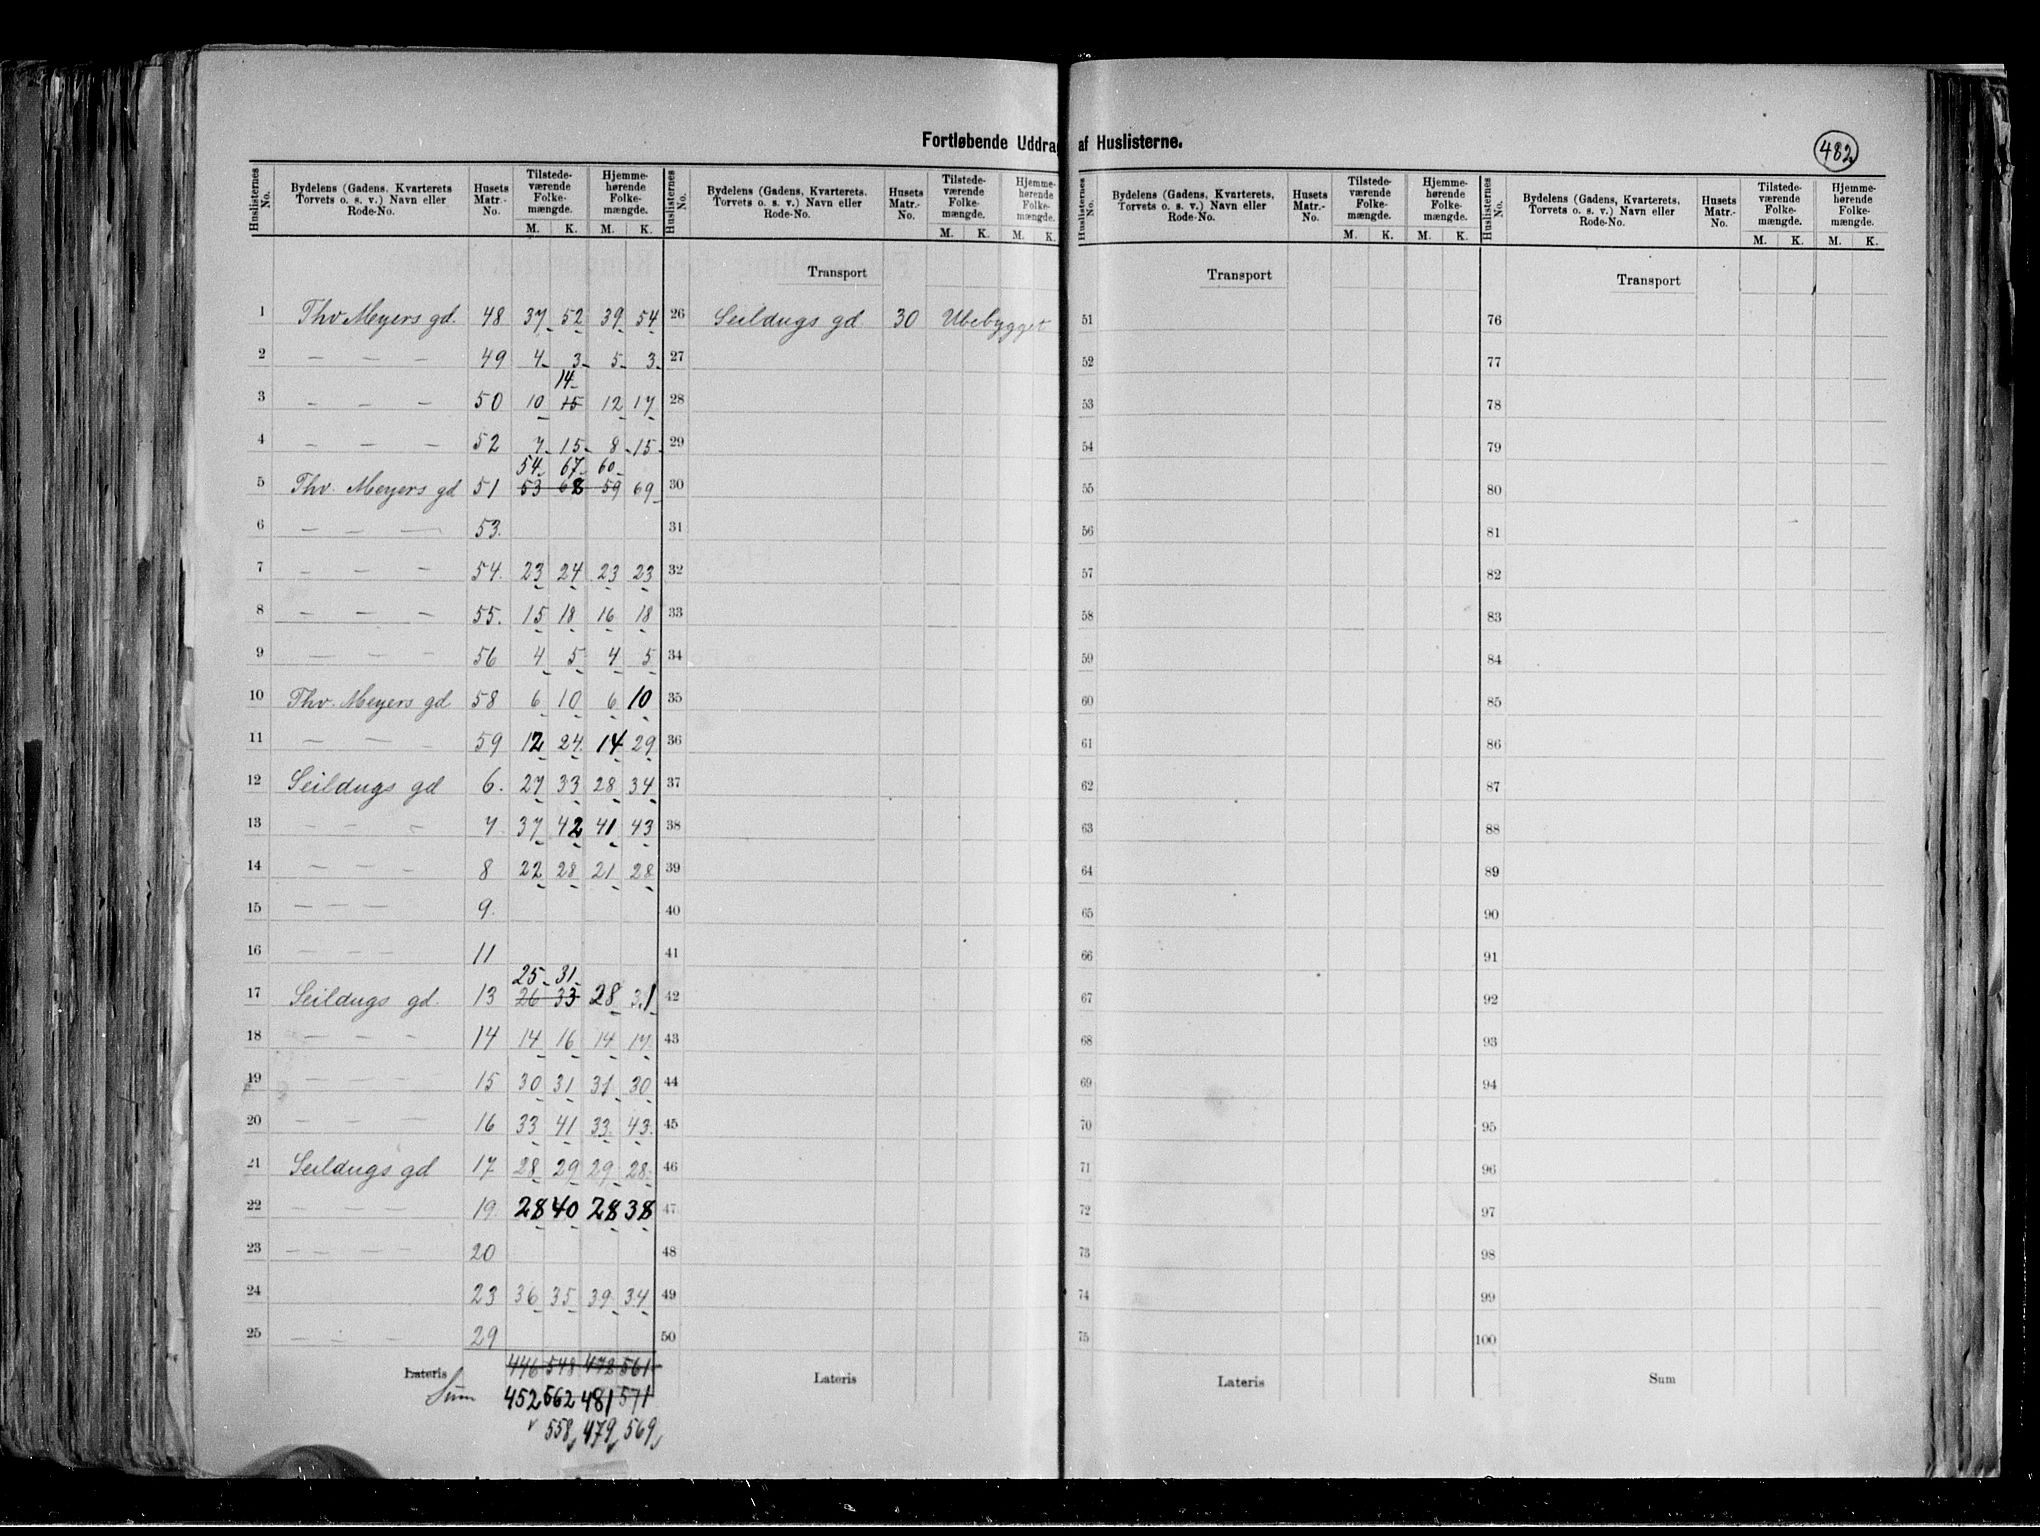 Fortløbende Uddrag af Huslisterne.
482
Huslisternes No. | Bydelens (Gadens, Kvarterets Torvets o. s. v.) Navn eller Rode-No. | Husets Matr.-No. | Tilstede-værende Folke-mængde. M. K. | Hjemme-hørende Folke-mængde. M. K.
Huslisternes No. | Bydelens (Gadens, Kvarterets, Torvets o. s. v.) Navn eller Rode-No. | Husets Matr.-No. | Tilstede-værende Folke-mængde. M. K. | Hjemme-hørende Folke-mængde. M. K.
Huslisternes No. | Bydelens (Gadens, Kvarterets, Torvets o. s. v.) Navn eller Rode-No. | Husets Matr.-No. | Tilstede-værende Folke-mængde. M. K. | Hjemme-hørende Folke-mængde. M. K.
Huslisternes No. | Bydelens (Gadens, Kvarterets, Torvets o. s. v.) Navn eller Rode-No. | Husets Matr.-No. | Tilstede-værende Folke-mængde. M. K. | Hjemme-hørende Folke-mængde. M. K.
Transport Transport Transport
1 Thv Meyers gd. 48 37 52 39 54 26 Seildugs gd 30 Ubebygget 51 76
2 — — — 49 4 3 5 3 27 52 77
14
3 — — — 50 10 15 12 17 28 53 78
4 — — — 52 7 15 8 15 29 54 79
54 67 60
5 Thv. Meyers gd 51 53 68 59 69 30 55 80
6 — — — 53. 31 56 81
7 — — — 54. 23 24 23 23 32 57 82
8 — — — 55. 15 18 16 18 33 58 83
9 — — — 56 4 5 4 5 34 59 84
10 Thv. Meyers gd 58 6 10 6 10 35 60 85
11 — — — 59 12 24 14 29 36 61 86
12 Seildugs gd 6. 27 33 28 34 37 62 87
13 — — — 7 37 42 41 43 38 63 88
14 — — — 8 22 28 21 28 39 64 89
15 — — — 9. 40 65 90
16 — — — 11 41 66 91
25 31
17 Seildugs gd. 13 26 33 28 31 42 67 92
18 — — — 14 14 16 14 17 43 68 93
19 — — — 15 30 31 31 30 44 69 94
20 — — — 16 33 41 33 43 45 70 95
21 Seildugs gd 17 28 29 29 28 46 71 96
22 — — — 19. 28 40 28 38 47 72 97
23 — — — 20 48 73 98
24 23 36 35 39 34 49 74 99
25 — — — 29 50 75 100
Lateris 446 548 472 561 Lateris Lateris Sum
Sum 452 562 481 571
558 479 569